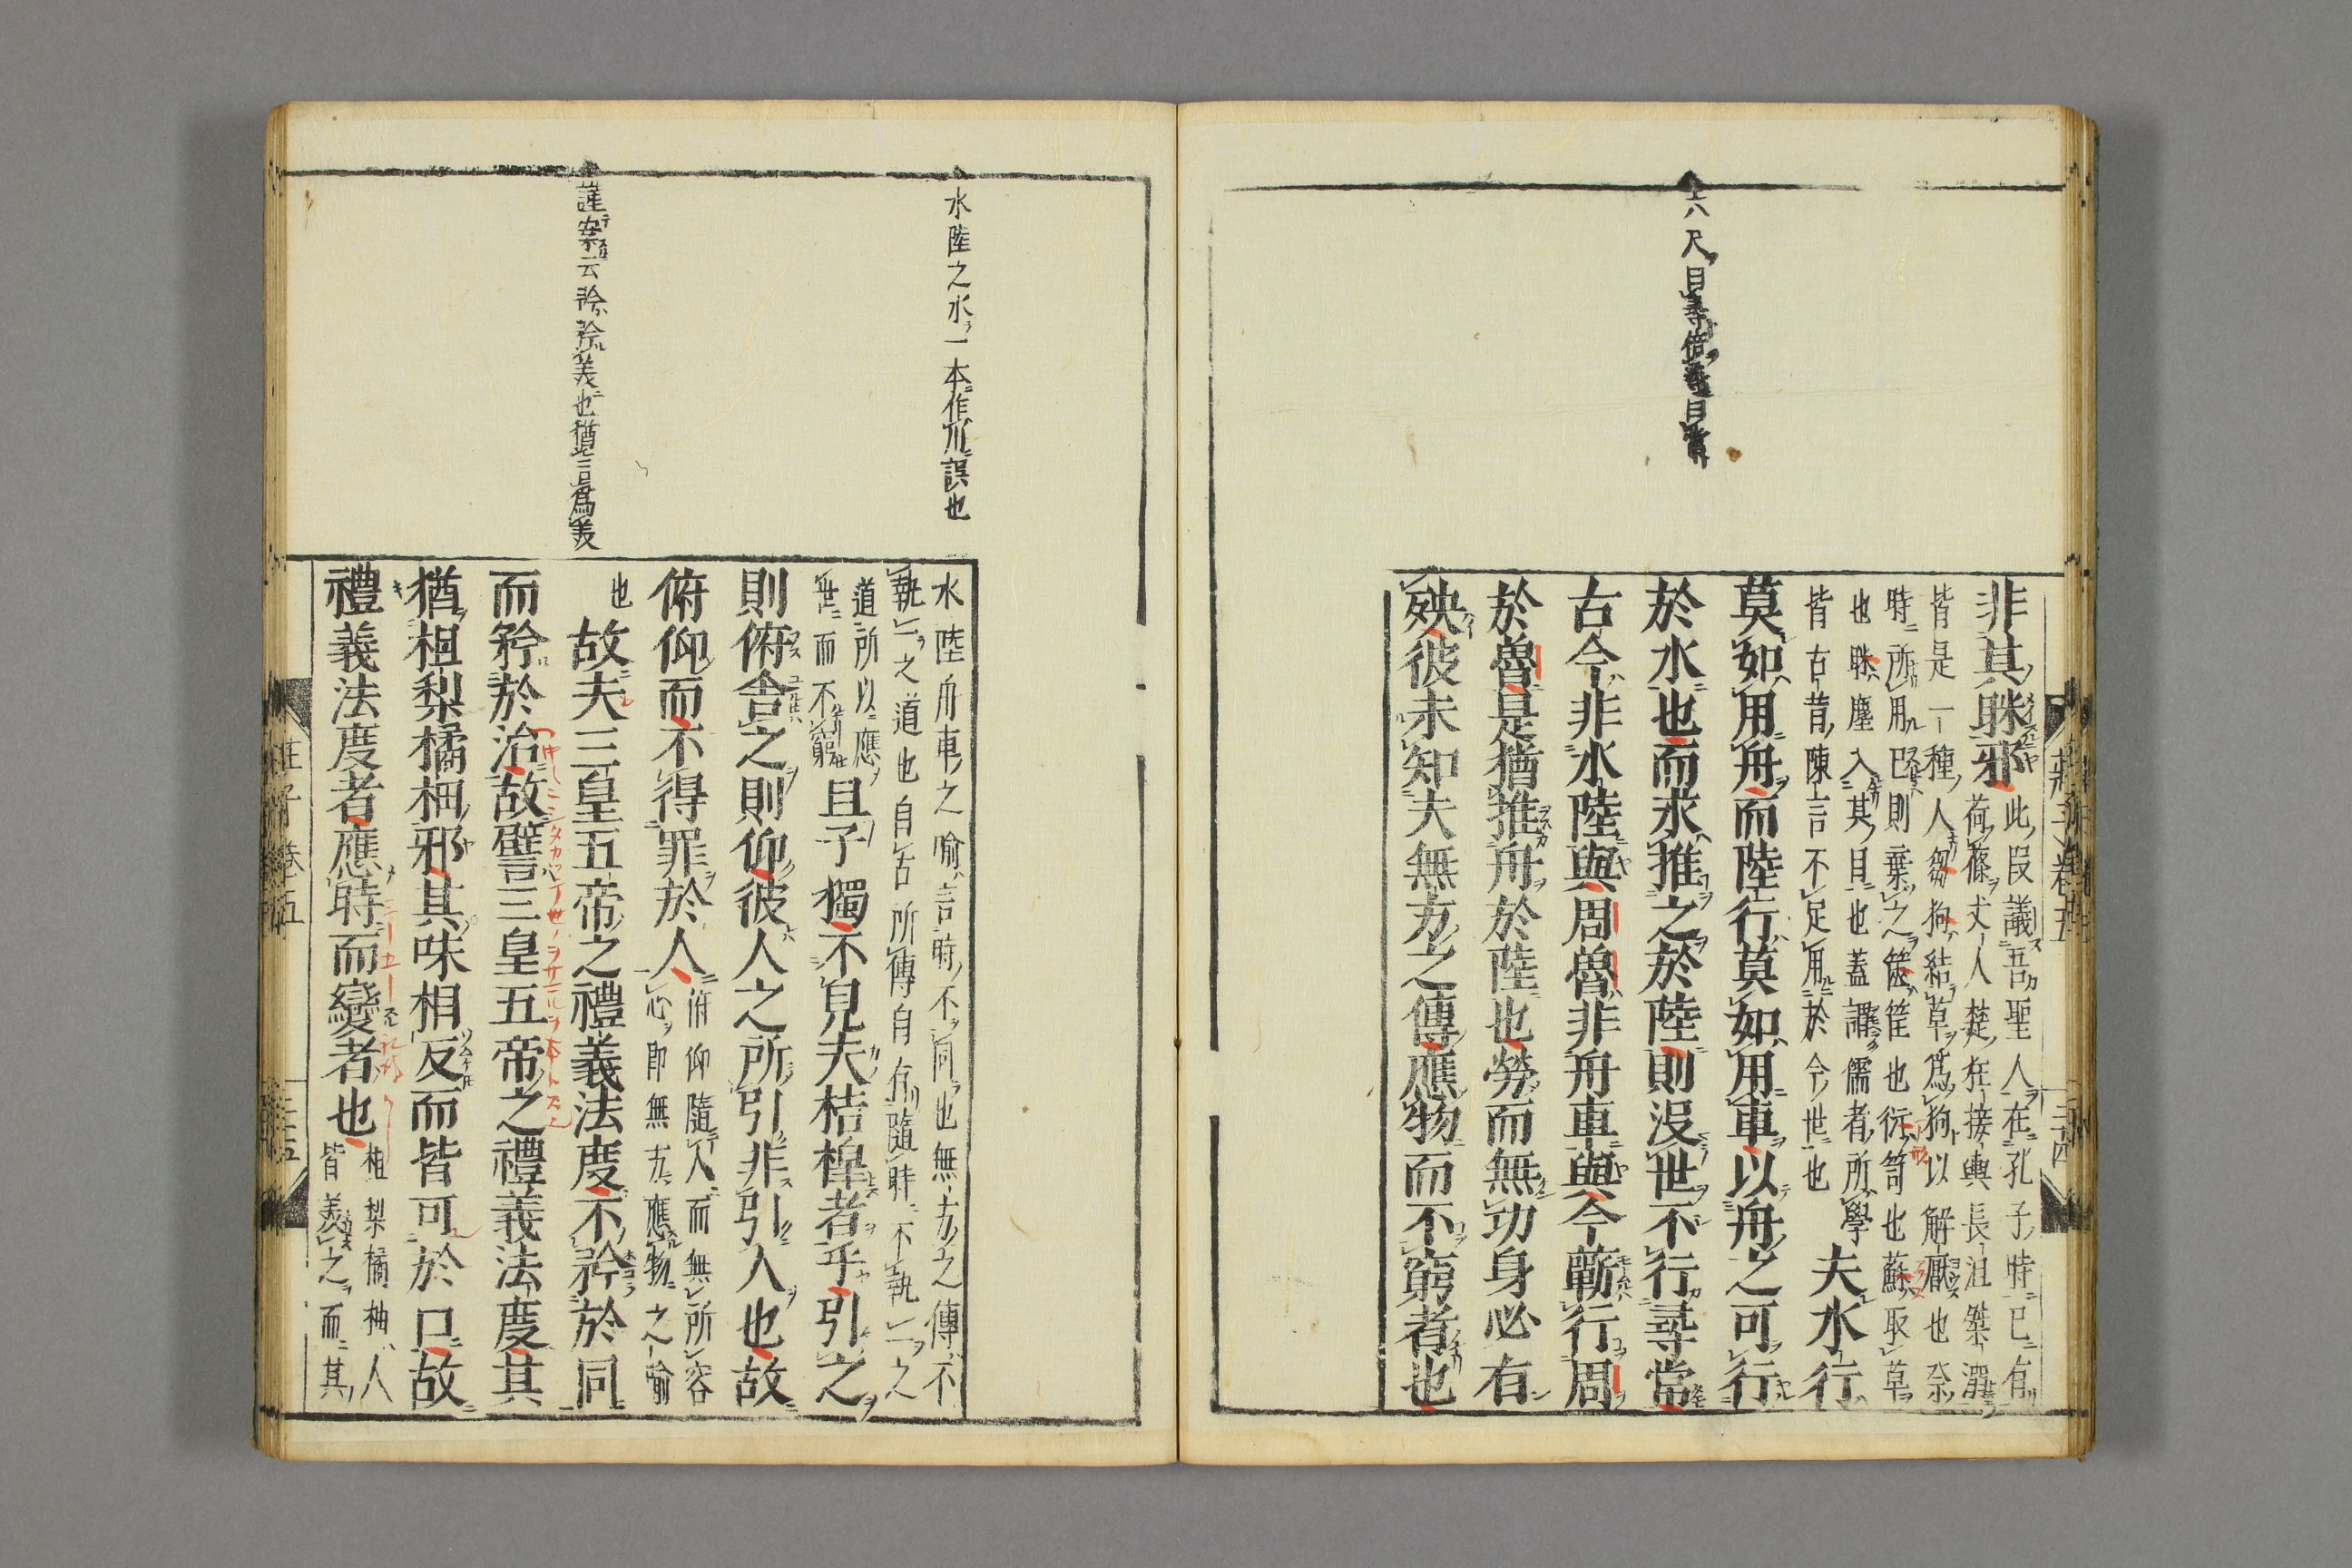 八尺曰尋倍尋曰常
非其眯邪
此段議吾聖人在孔子時已有
荷蓧丈人楚狂接輿長沮桀溺
皆是一種人芻狗結草爲狗以解厭也奈
時所用已則棄之篋筐也衍笥也蘇取草
也眯塵入其目也蓋謂儒者所學
皆古昔陳言不足用於今世也
夫水行
莫如用舟而陸行莫如用車以舟之可行
於水也而求推之於陸則沒世不行尋常
古今非水陸與周魯非舟車與今蘄行周
於魯是猶推舟於陸也勞而無功身必有
殃彼未知夫無方之傳應物而不窮者也
莊子卷五
三十四
水陸之水一本作川誤也
謹案云矜矜義也猶言爲美
水陸舟車之喻言時不同也無方之傳不
執一之道也自古所傳自有隨時不執一之
道所以應
無而不窮
且子獨不見夫桔槹者乎引之
則俯舍之則仰彼人之所引非引人也故
俯仰而不得罪於人
俯仰隨人而無所容
心即無方應物之喻
也
故夫三皇五帝之禮義法度不矜於同
而矜於治故譬三皇五帝之禮義法度其
猶柤梨橘柚邪其味相反而皆可於口故
禮義法度者應時而變者也
柤梨橘柚人
皆美之而其
莊子卷五
三十五